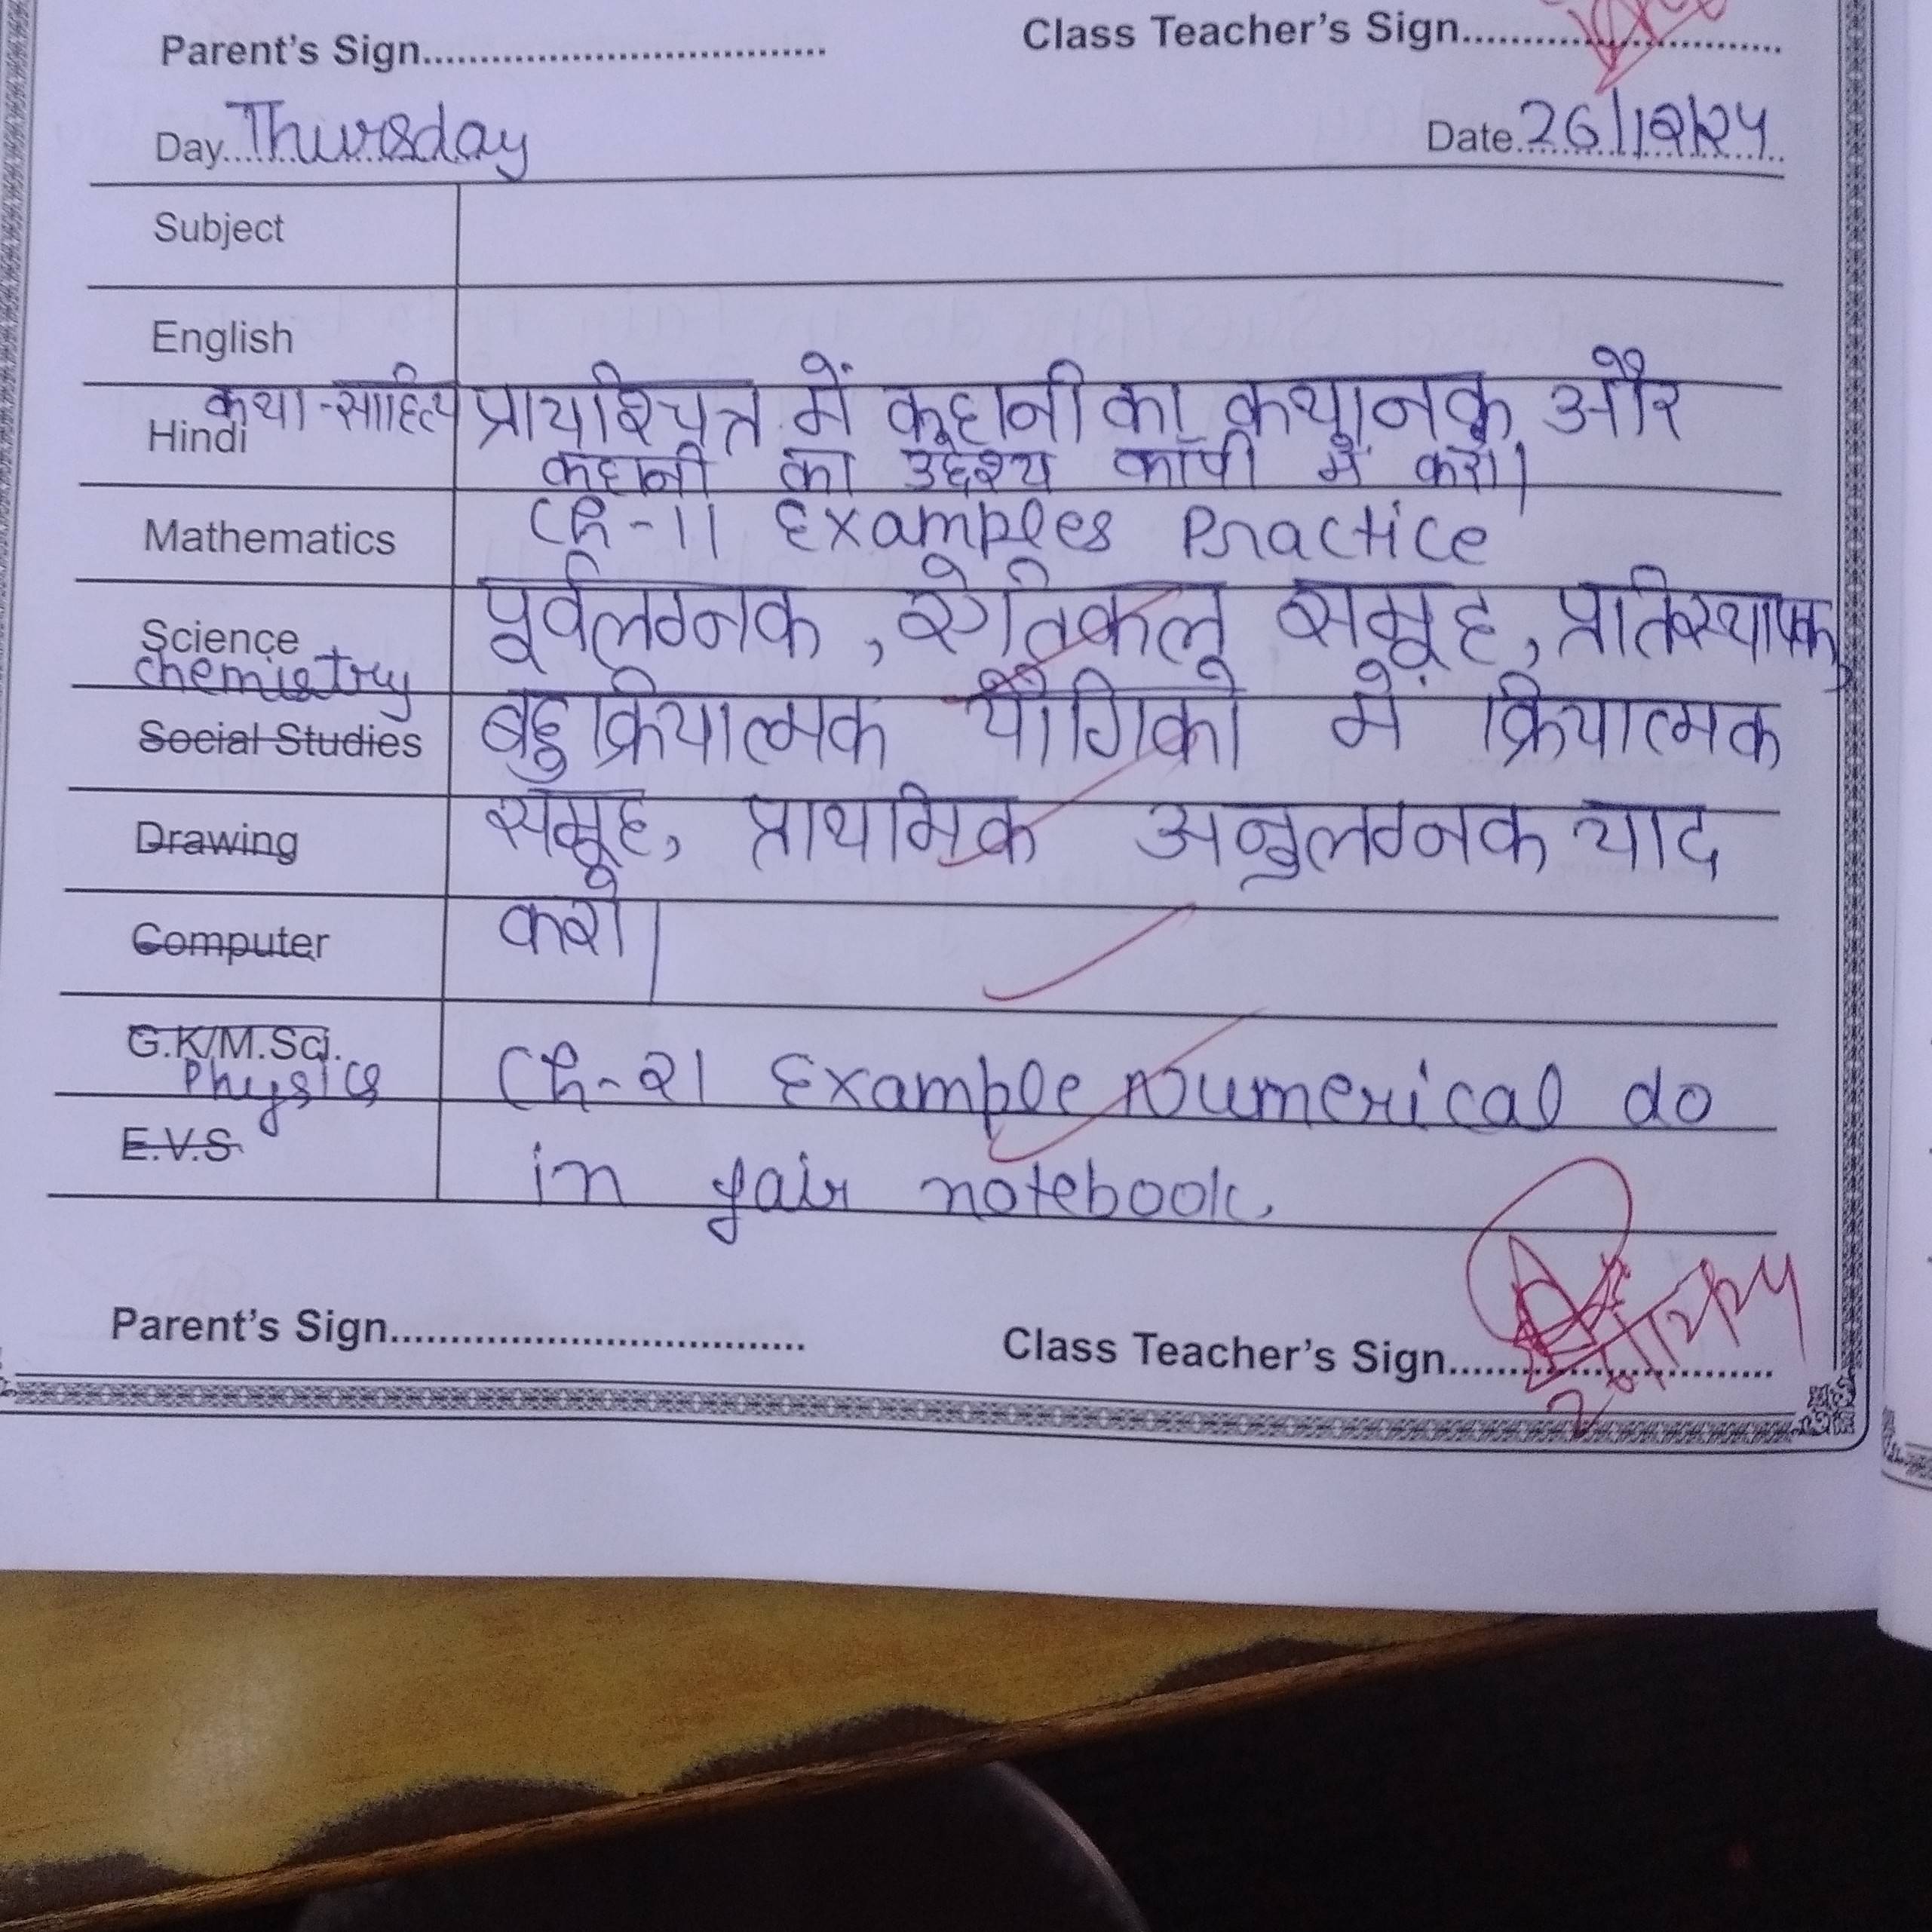 Parent's Sign.................................... Class Teacher's Sign............................
Day Thursday Date 26/12/24
Subject
English
कथा-साहित्य प्रायश्चित्त में कहानी का कथानक और
Hindi कहानी का उद्देश्य कॉपी में करो।
Mathematics Ch-11 Examples Practice
Science पूर्वलग्नक, समूह, प्रतिस्थापक,
chemistry
Social Studies बहुक्रियात्मक यौगिको में क्रियात्मक
Drawing समूह, प्राथमिक अनुलग्नक याद
Computer करो।
G.K/M.Sci.
Physics Ch-21 Example Numerical do
E.V.S in fair notebook.
Parent's Sign.................................... Class Teacher's Sign............................